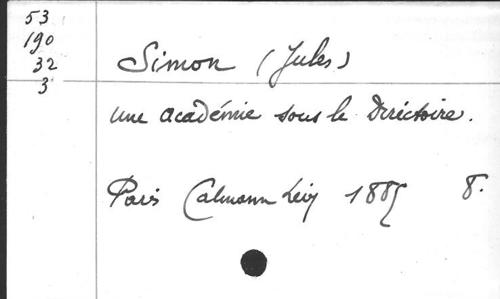 53
190
32
3
Simon (Jules)
une académie sous le Diréctoire.
Paris Calmann Lévy 1885 8.